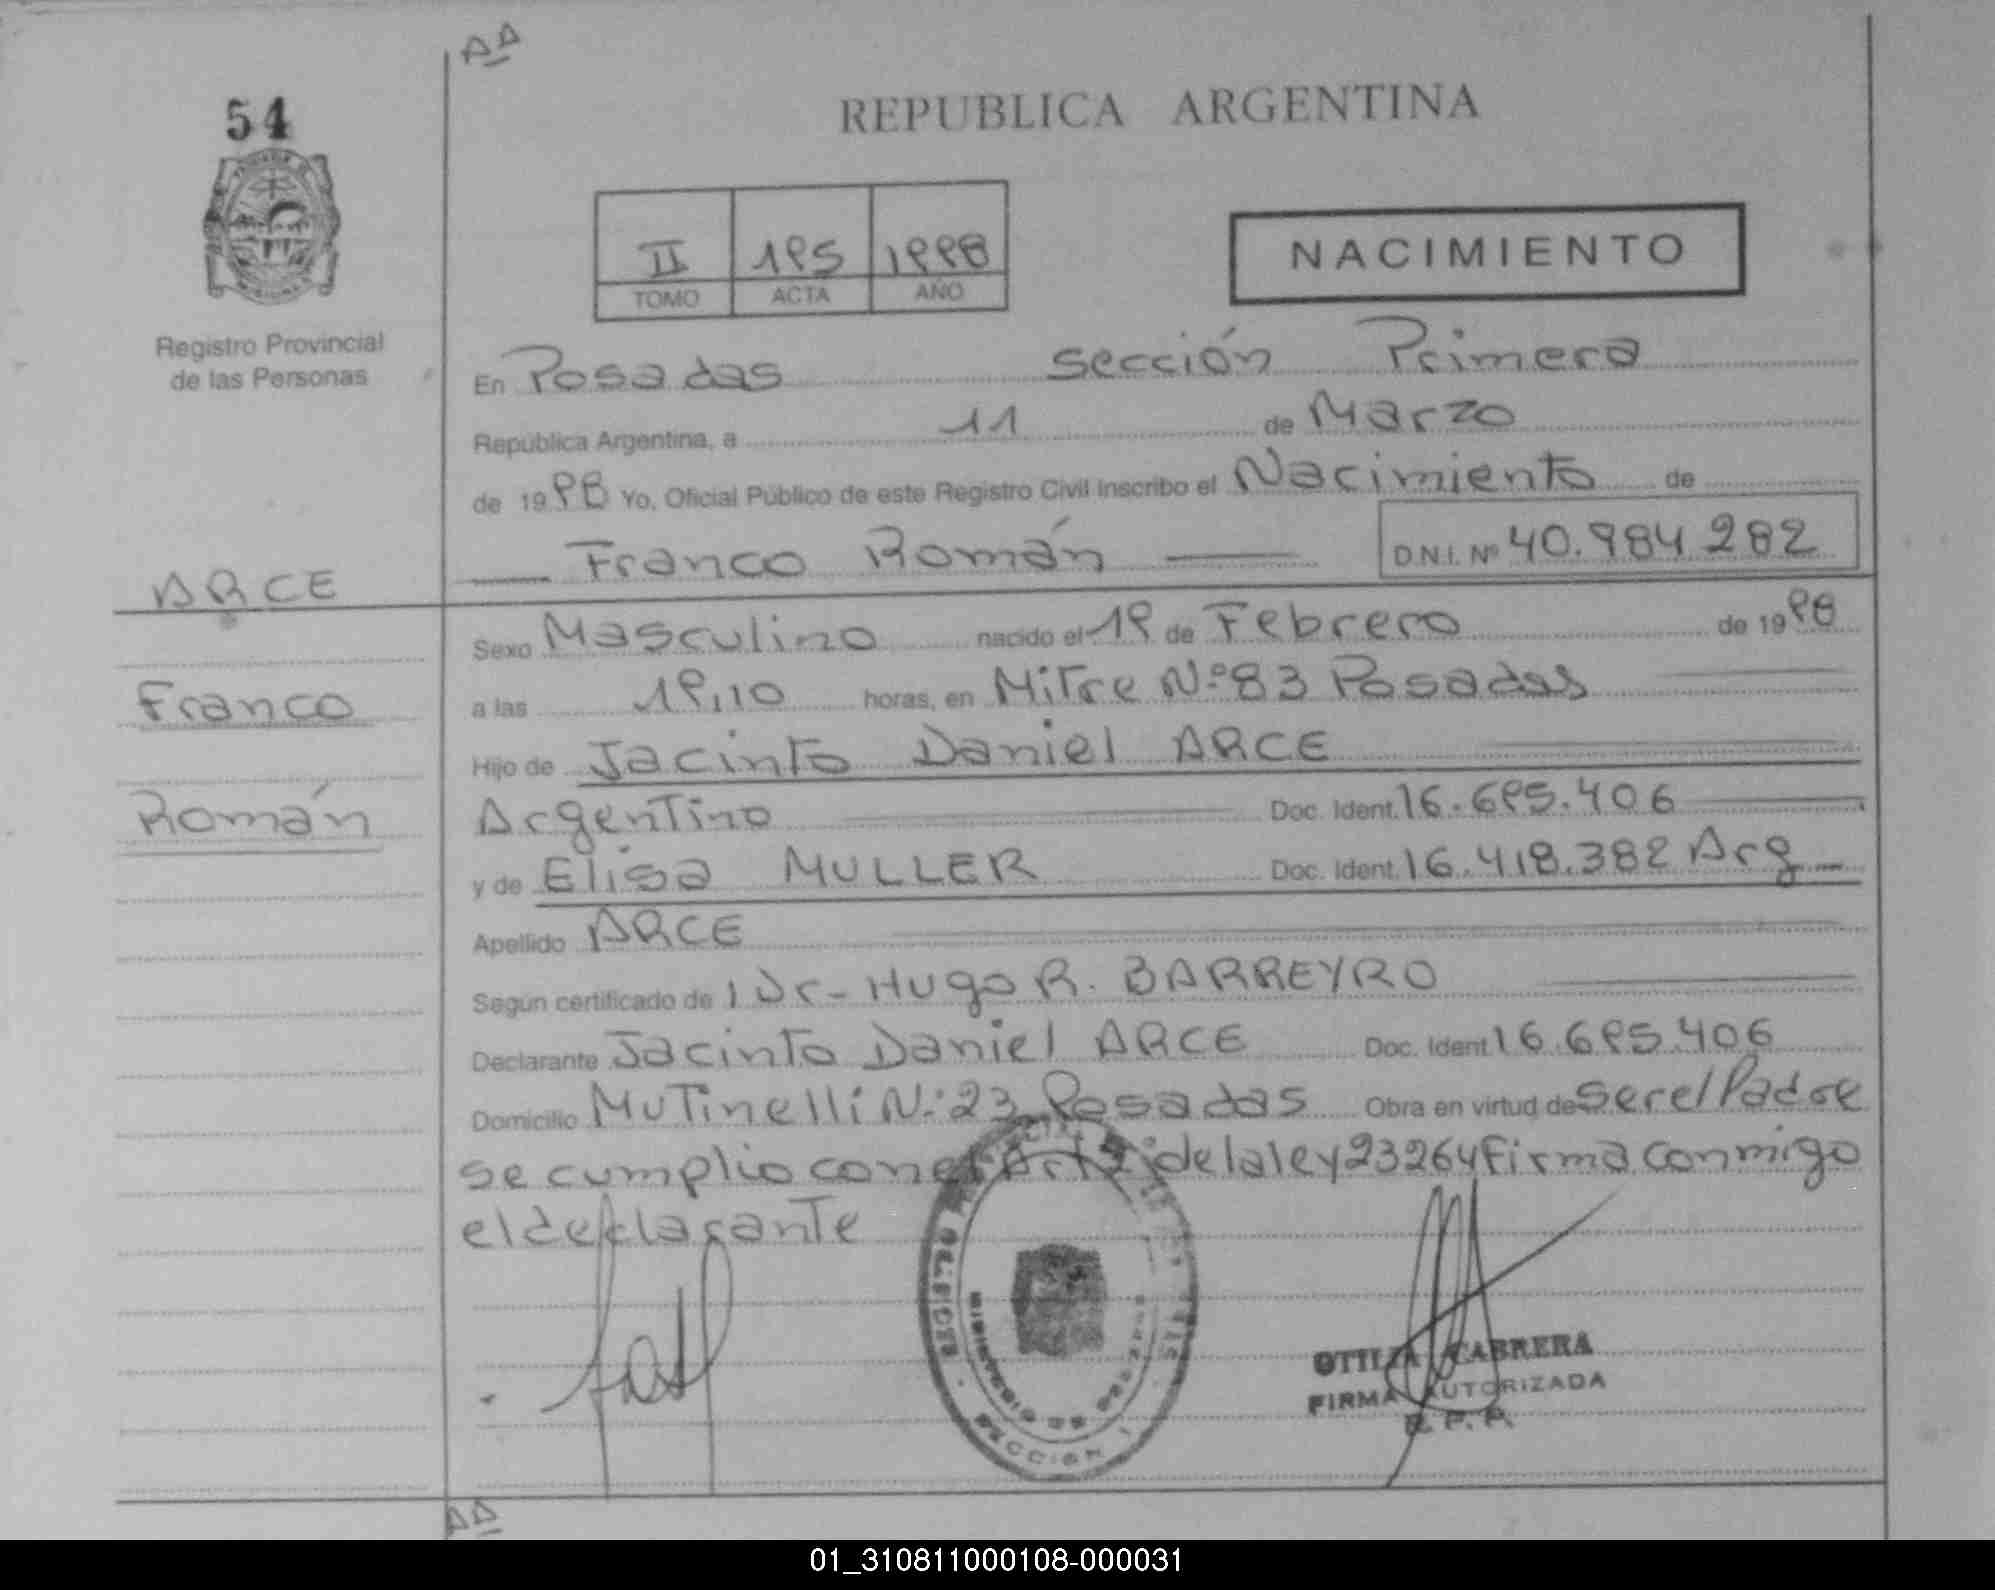 AA
54
REPUBLICA ARGENTINA
II 195 1998
TOMO ACTA AÑO
NACIMIENTO
Registro Provincial
de las Personas
En Posadas sección Primera
República Argentina, a 11 de Marzo
de 1998 Yo, Oficial Público de este Registro Civil inscribo el Nacimiento de
Franco Román D.N.I. Nº 40.984.282
ARCE
Franco
Román
Sexo Masculino nacido el 19 de Febrero de 1998
a las 19,10 horas, en Mitre Nº 83 Posadas
Hijo de Jacinto Daniel ARCE
Argentino Doc. Ident. 16.695.406
y de Elisa MULLER Doc. Ident. 16.418.382 Arg
Apellido ARCE
Según certificado de 1 Dr- Hugo R. BARREYRO
Declarante Jacinto Daniel ARCE Doc. Ident 16.695.406
Domicilio Mutinelli N.: 23 Posadas Obra en virtud de ser el Padre
se cumplio con el Art 2 de la ley 23264 firma conmigo
el declarante
MINISTERIO DE
SECCION 1
OTILIA CABRERA
FIRMA AUTORIZADA
R. P. P.
AA
01_310811000108-000031